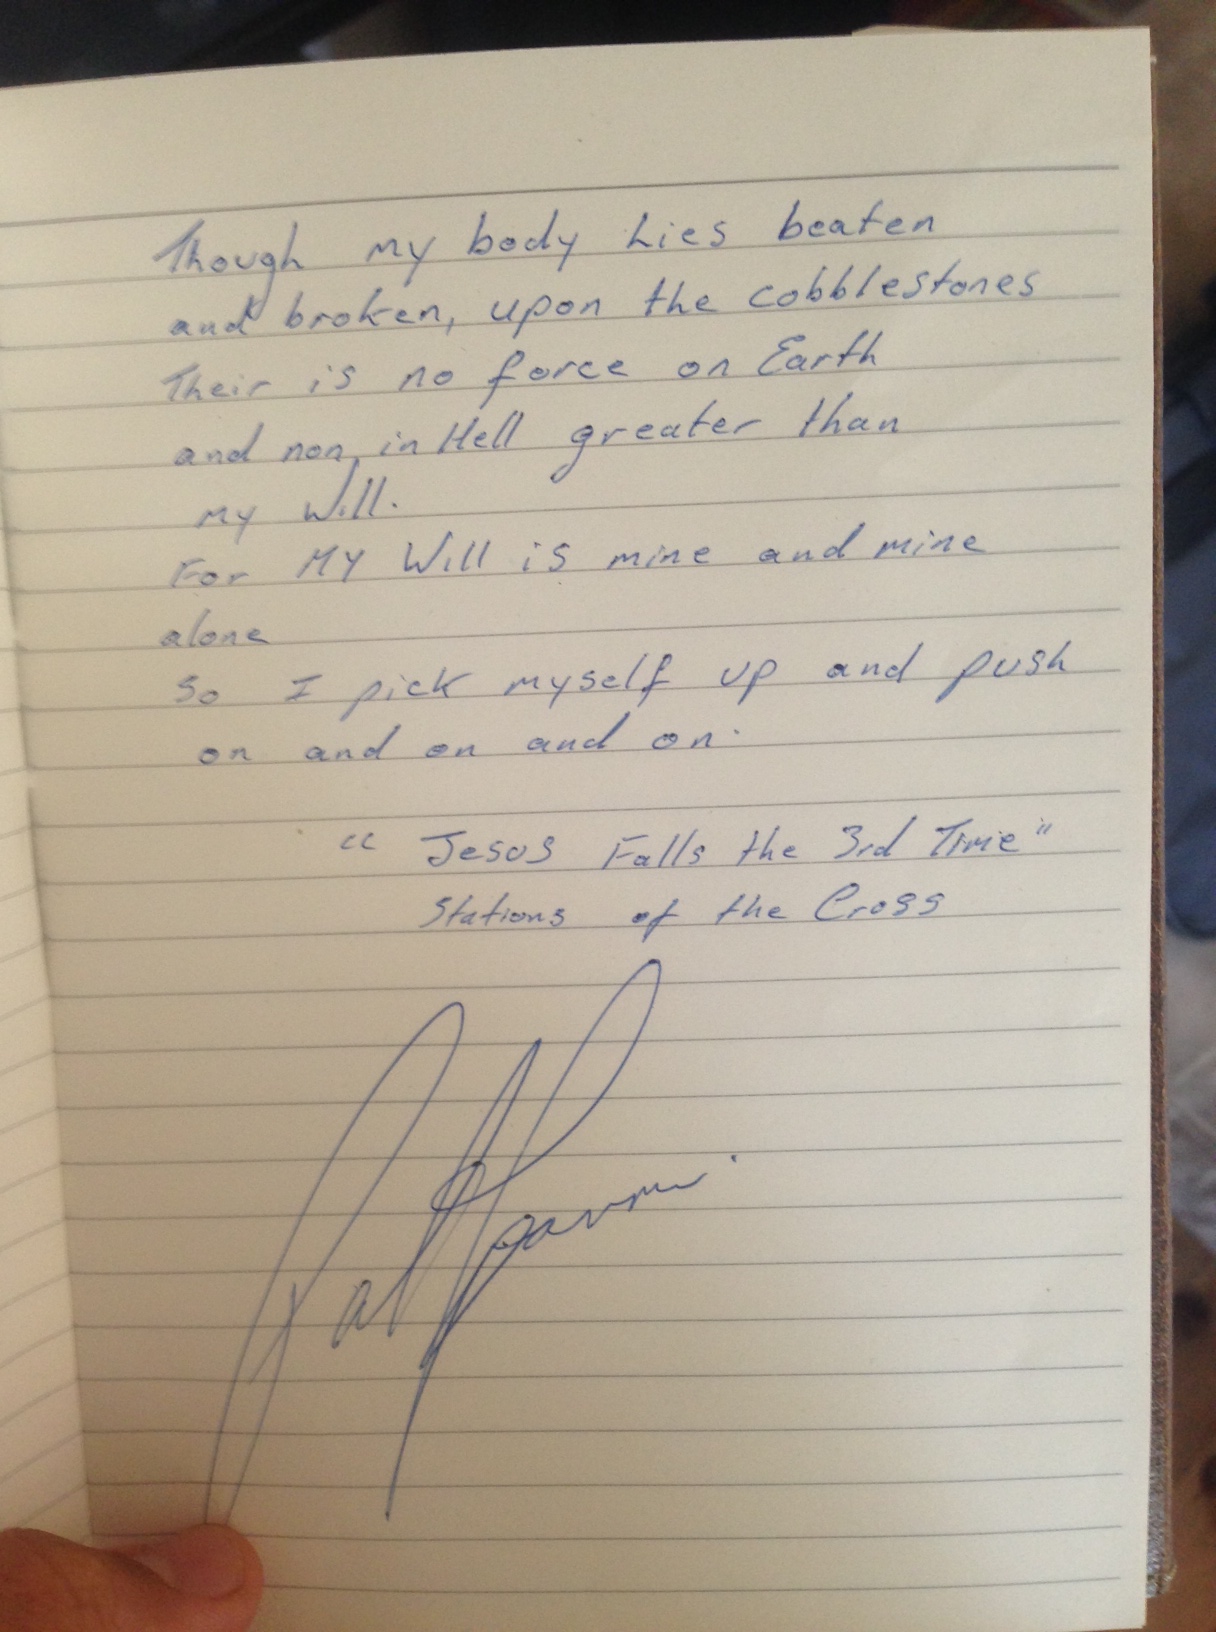 Though my body Lies beaten
and broken, upon the cobblestones
Their is no force on Earth
and non, in Hell greater than
my Will.
For MY Will is mine and mine
alone
So I pick myself up and push
on and on and on.
"Jesus Falls the 3rd Time"
Stations of the Cross